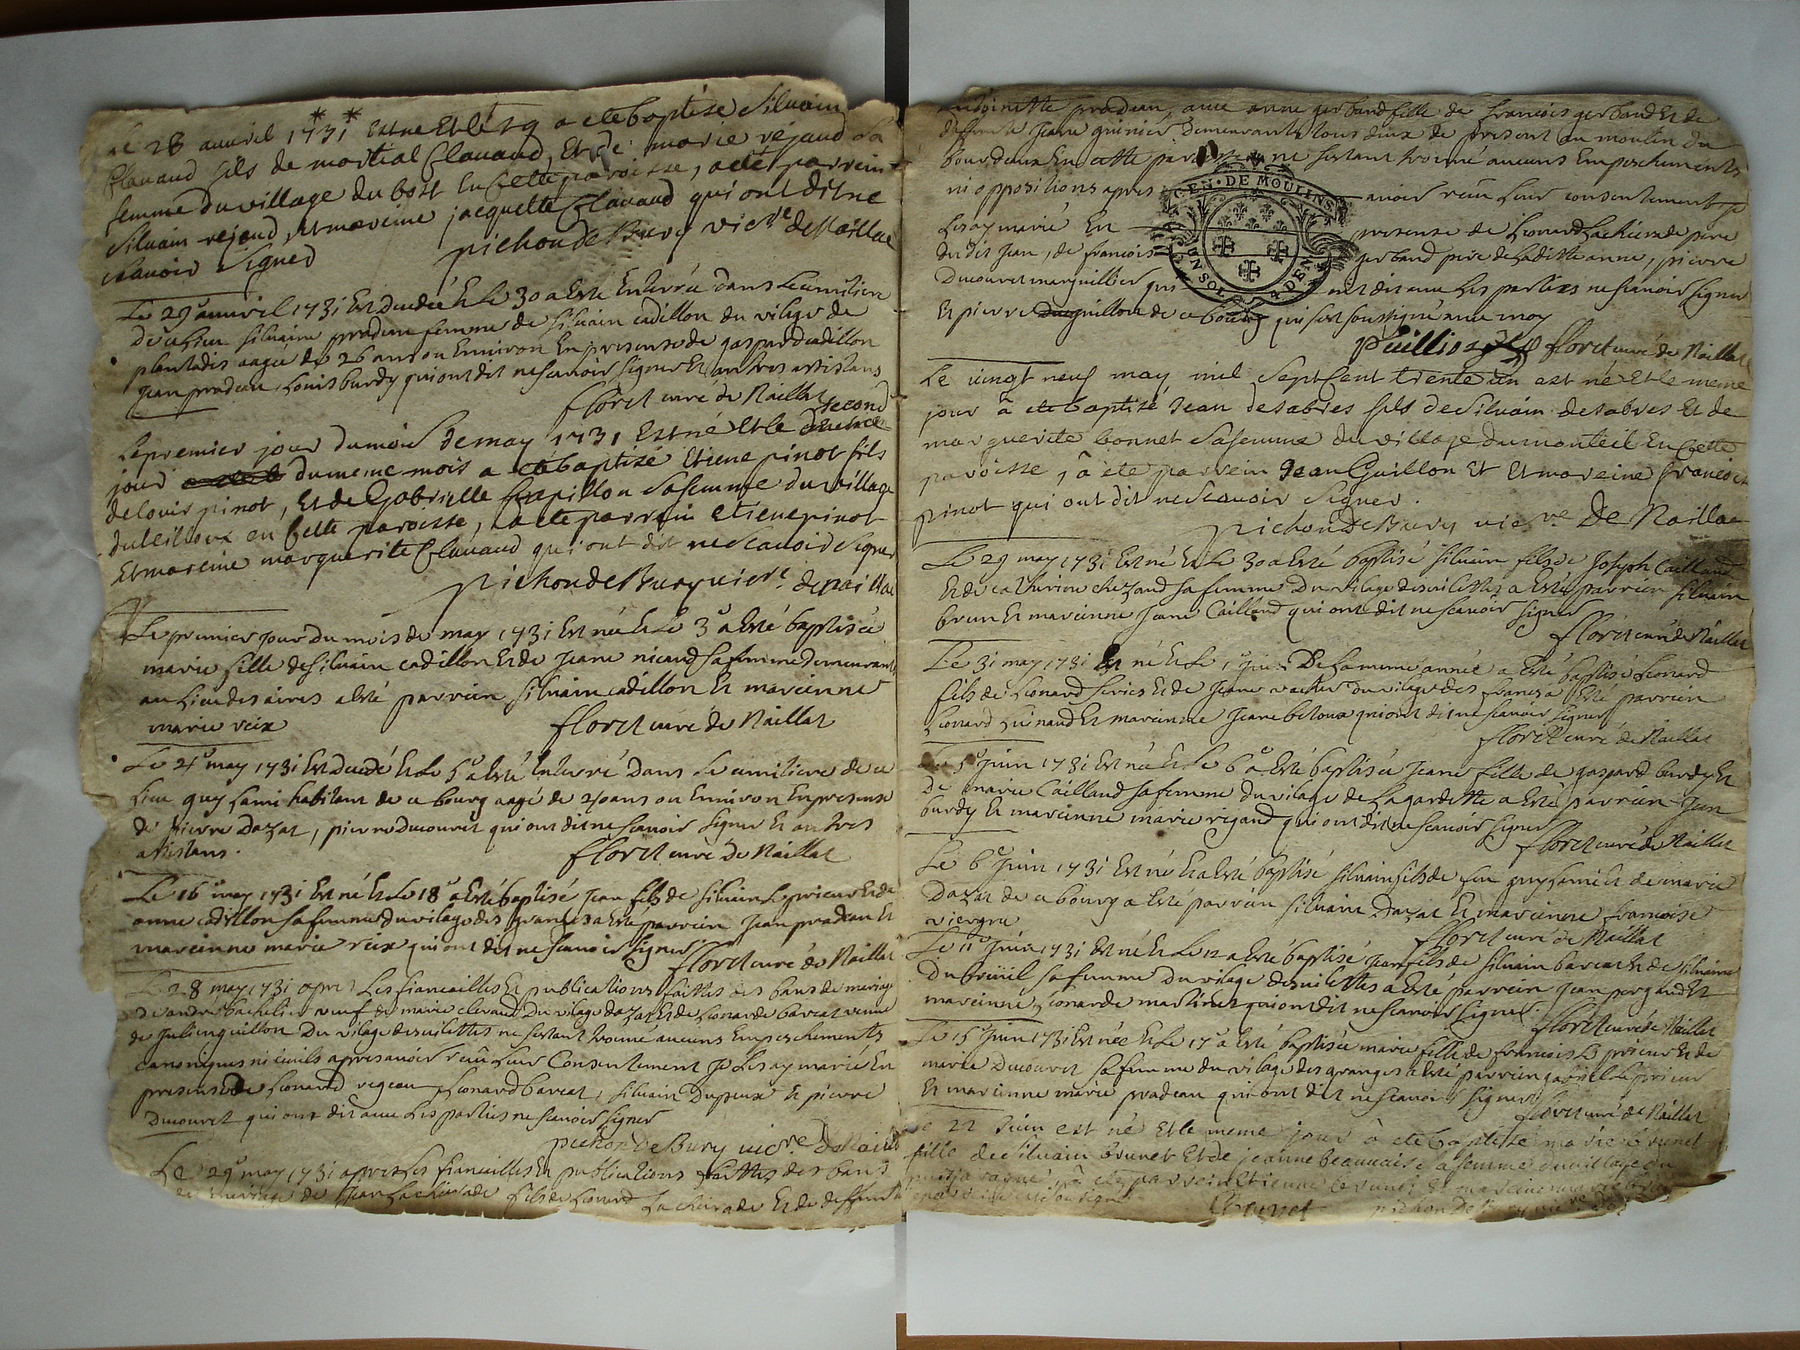 Le 28 auvril 1731 est ne et le 29 a ete baptise Silvain
Clavaud fils de martial Clavaud, et de marie rejaud sa
femme du village du bost en Cette paroisse, a ete parrein
Silvain rejaud, et mareine jacquette Clavaud qui ont dit ne
scavoir Signer
pichon de Bury vicre de Naillac
Le 29 auvril 1731 Est decedée Et Le 30 a Esté Enterrée dans Le cimetiere
de ce lieu silvaine pradeau femme de silvain cadillon du vilage de
plantadis aagée de 26 ans ou Environ En presense de gaspard cadillon
jean pradeau Louis burdy qui ont dit ne scavoir signer Et autres assistans
floret curé de Naillat
Le premier jour du mois de may 1731 est né et le second
jour du meme mois a eté baptize Etiene pinot fils
de louis pinot, et de Gabrielle Papillon sa femme du village
en Cette paroisse, a ete parrein etiene pinot
Et mareine marguerite Clavaud qui ont dit ne scavoir Signer
pichon de Bury vicre. de naillac
Le premier jour du mois de may 1731 Est née Et Le 3e a Esté baptisée
marie fille de silvain cadillon Et de Jeane nicaud sa femme demeurant
au Lieu des aires a Esté parrein silvain cadillon Et mareinne
marie reix
floret curé de Naillat
Le 4e may 1731 Est decedé Et Le 5e a Esté Enterré dans Le cimitiere de ce
Lieu guy lami habitant de ce bourg aagé de ans ou Environ En presense
de pierre dazat, pierre ducouret qui ont dit ne scavoir signer Et autres
assistans.
floret curé de Naillat
Le 16e may 1731 Est né Et Le 18e a Esté baptisé Jean fils de silvain Leprieur Et de
anne cadillon sa femme du vilage des granges a Esté parrein Jean pradeau Et
mareinne marie reix qui ont dit ne scavoir signer
floret curé de Naillat
Le 28 may 1731 apres Les fiancailles Et publications faittes des bans de mariage
de andré bachelier veuf de marie clavaud du vilage dazat Et de Lionarde barcat veuve
de Julien guillon du vilage de vilettes ne sestant trouvé aucuns Empeschements
canoniques ni civils apres avoir reçu Leur Consentement je Les ay mariés En
presense de Lionard regeau, Lionard barcat, silvain dupeux Et pierre
ducouret qui ont dit avec Les parties ne scavoir signer
pichon de Bury vicre. De Naillac
Le 29e may 1731 apres Les fiancailles Et publications faittes des bans
de mariage de Jean Lachirade fils de Lionard Lachirade Et de deffunte
antoinette pradeau, avec anne gerbaud fille de francois gerbaud Et de
deffunte Jeane grenier demeurants tous deux de present au moulin du
bourdeaux En cette paroisse ne sestant trouvé aucuns Empeschements
ni oppositions apres avoir reçu Leur consentement je
Les ay mariés En presense de Lionard Lachirade pere
dudit Jean, de francois gerbaud pere de Laditte anne, pierre
Ducouret marguillier qui ont dit avec Les parties ne scavoir signer
Et pierre duguillon de ce bourg qui sest soussigné avec moy
GEN. DE MOULINS
floret curé de Naillat
Le vingt neuf may mil Sept Cent trente un est né et le meme
jour a ete baptisé Jean desabres fils de Silvain desabres et de
marguerite bonnet sa femme du village du monteil en Cette
paroisse, a ete parrein Jean Guillon et mareine francoise
pinot qui ont dit ne scavoir Signer.
pichon de Bury vicre De Naillac
Le 29 may 1731 Est né Et Le 30 a Esté baptisé silvain fils de Joseph Caillaud
Et de catherine chezaud sa femme du vilage de vilettes a Esté parrein silvain
brun Et mareinne Jeane Caillaud qui ont dit ne scavoir signer
floret curé de Naillat
Le 31 may 1731 Est né Et Le 1er juin De La meme année a Esté baptisé Leonard
fils de Lionard Et de Jeane vacher du vilage des granges a Esté parrein
Lionard Lunaud Et mareinne Jeane betoux qui ont dit ne scavoir signer
floret curé de Naillat
Le 5e Juin 1731 Est née Et Le 6e a Esté baptisée Jeane fille de gaspard burdy Et
de marie Caillaud sa femme du vilage de Lagardette a Esté parrein Jean
burdy Et mareinne marie rigaud qui ont dit ne scavoir signer
floret curé de Naillat
Le 6e Juin 1731 Est né Et a Esté baptisé silvain fils de feu guy lami Et de marie
Dazat de ce bourg a Esté parrein silvain Dazat Et mareinne francoise
vicergne
floret curé de Naillat
Le 11e Juin 1731 Est né Et Le 12 a Esté baptisé Jean fils de silvain barcat Et de silvaine
Dubreuil sa femme du vilage de vilettes a Esté parrein Jean Et
mareinne Lionarde martinet qui ont dit ne scavoir signer
floret curé de Naillat
Le 15e Juin 1731 Est née Et Le 17e a Esté baptisée marie fille de francois Le prieur Et de
marie Ducouret sa femme du vilage des granges a Esté parrein gabriel Leprieur
Et mareinne marie pradeau qui ont dit ne scavoir signer
floret curé de Naillat
Le 22 Juin est né et le meme jour a ete baptisée marie brunet
fille de Silvain brunet et de jeanne beauvais sa femme du village du
a ete parrein Etienne brunet et mareine marie
Brunet pichon de Bury vicre